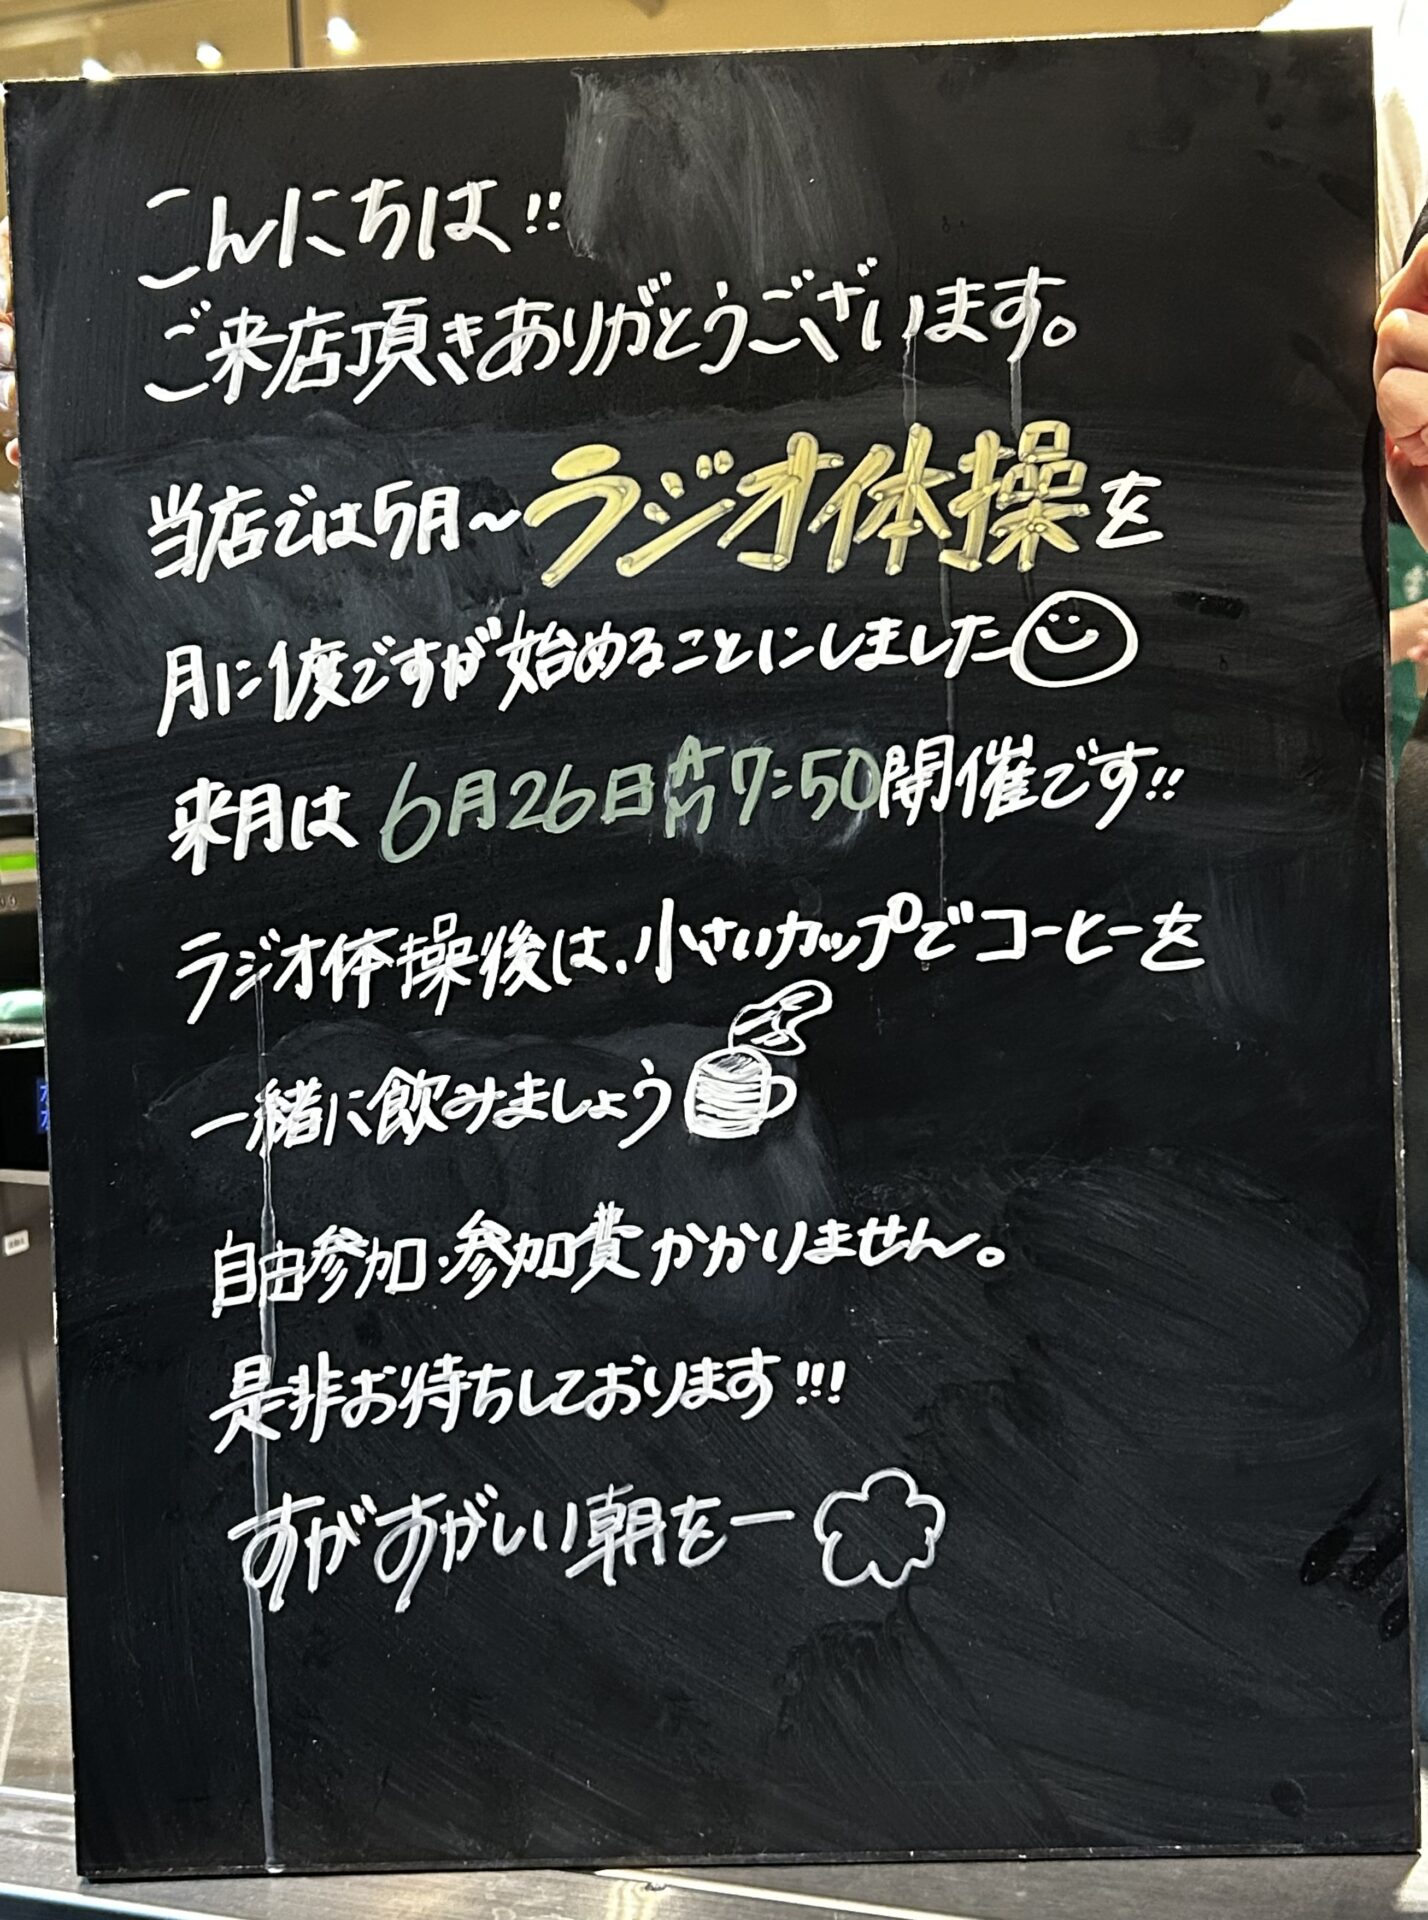 こんにちは!!
ご来店頂きありがとうございます。
当店では5月〜ラジオ体操を
月に1度ですが始めることにしました
来月は 6月26日AM7:50開催です!!
ラジオ体操後は、小さいカップでコーヒーを
一緒に飲みましょう
自由参加・参加費かかりません。
是非お待ちしております!!!
すがすがしい朝をー